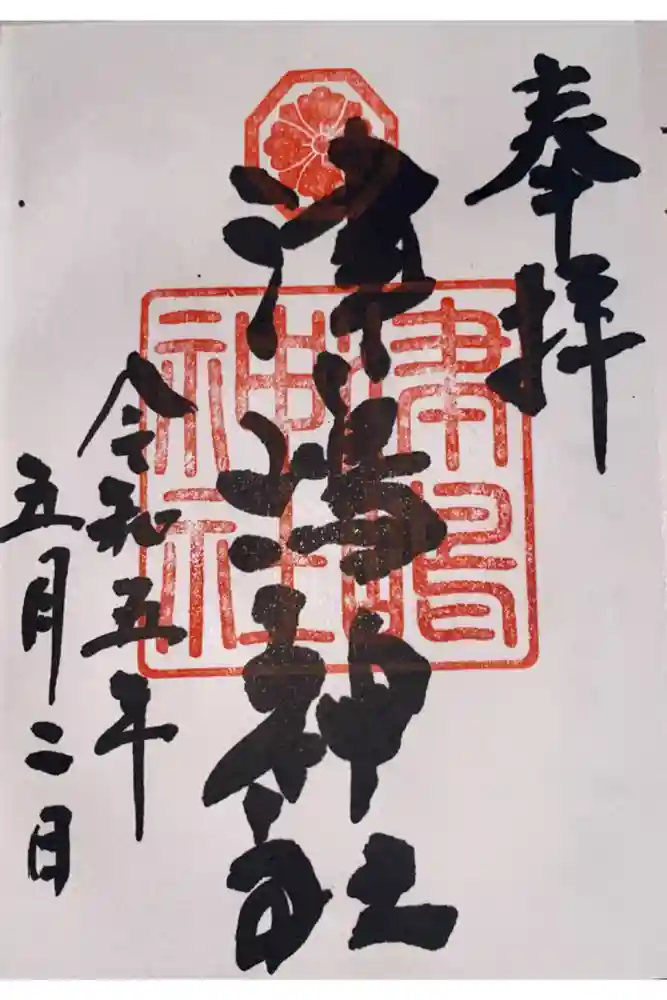 奉拝
津嶋神社
津嶋
神社
令和五年
五月二日